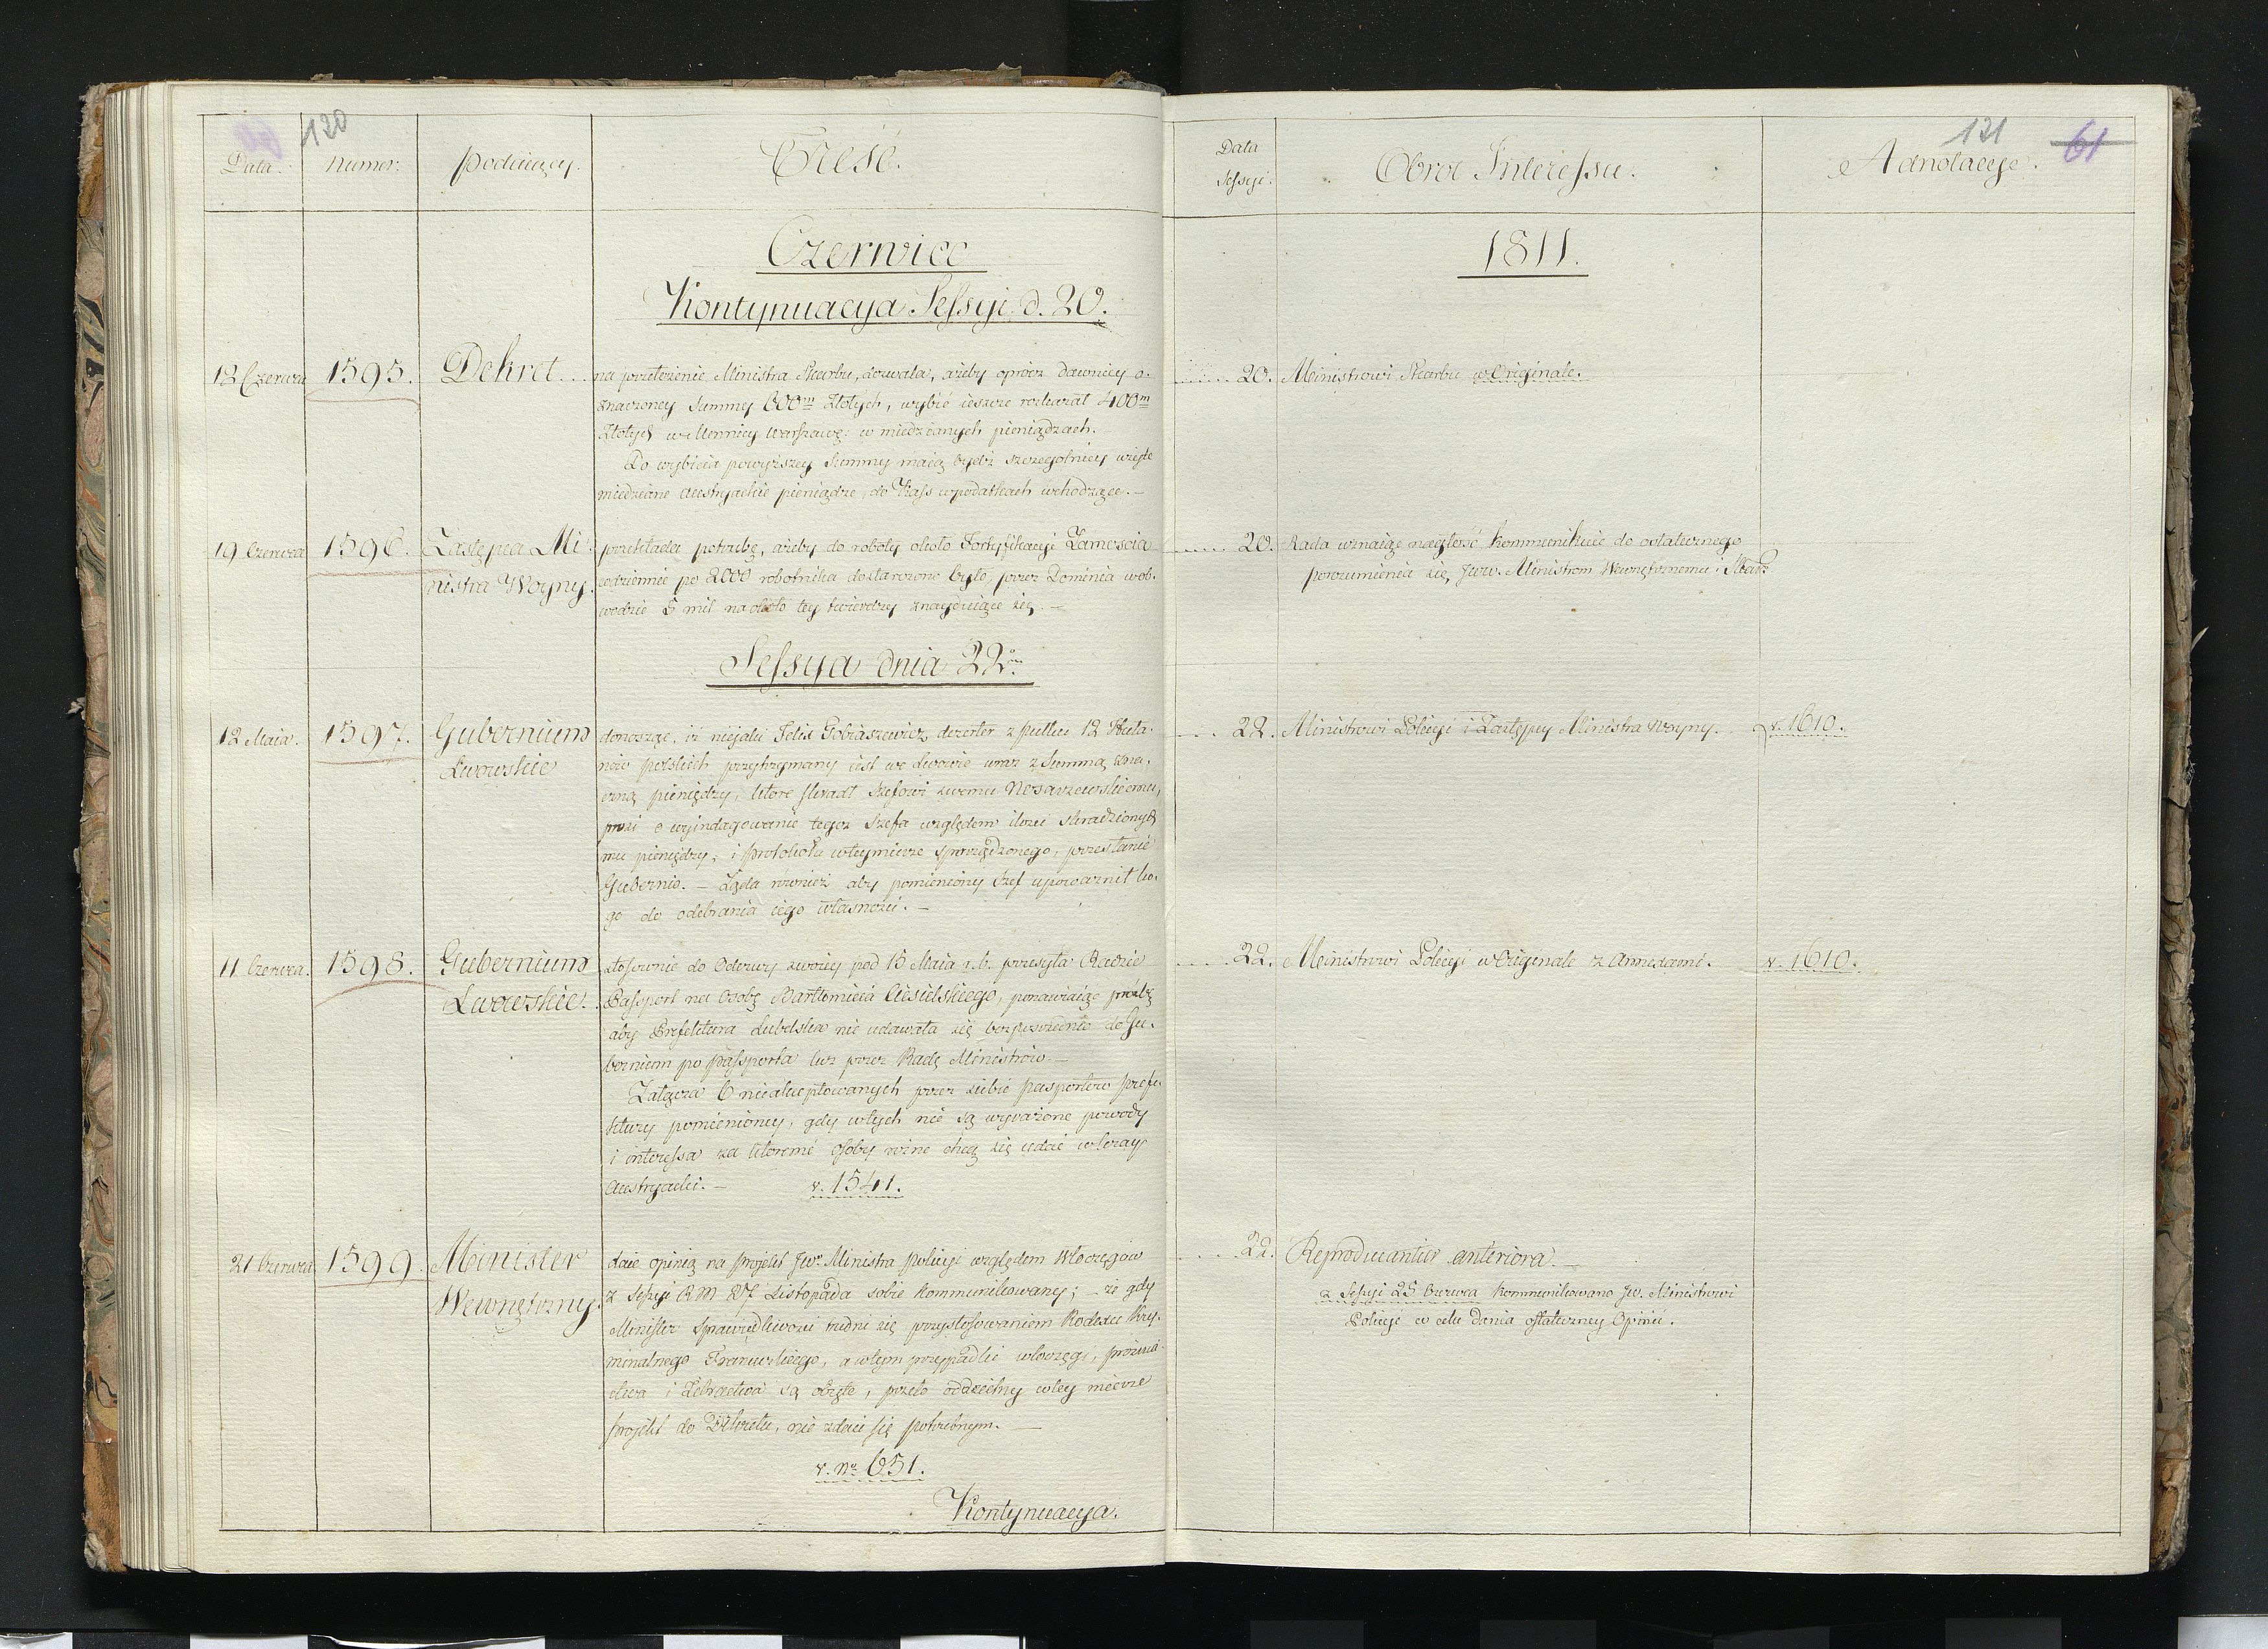 120
Data.
Numer.
Podaiący.
Treść.
Czerwiec
Kontynuacya Sessyi d. 20.
12 Czerwca
1595.
Dekret....
na przełożenie Ministra Skarbu, dozwala, ażeby oprócz dawniey o-
znaczoney Summy 600m Złotych, wybić ieszcze rozkazał 400m
Złotych w Mennicy Warszaws: w miedzianych pieniądzach.-
Do wybicia powyższey Summy maią bydź szczególniey użyte
miedziane Austryackie pieniądze, do Kass w podatkach wchodzące.-
19 Czerwca
1596.
Zastępca Mi-
nistra Woyny.
przekłada potrzebę, ażeby do roboty około Fortyfikacyi Zamościa
codziennie po 2000 robotnika dostarczone było, przez Dominia w ob-
wodzie 5 mil naokoło tey twierdzy znayduiące się.-
Sessya dnia 22o
12 Maia.
1597.
Gubernium
Lwowskie
donosząc, iż nieiaki Felix Gobiaszewicz dezerter z pułku 12 Uła-
nów polskich przytrzymany iest we Lwowie wraz z Summą zna-
czną pieniędzy, które skradł Szefowi swemu
prosi o wyindagowanie tegoż Szefa względem ilości skradzionych
mu pieniędzy, i protokołu w teymierze sporządzonego, przesłanie
Gubernio.- Żąda również aby pomieniony Szef upoważnił ko-
go do odebrania iego własności.-
11 Czerwca.
1598.
Gubernium
Lwowskie.
stosownie do Odezwy swoiey pod 15 Maia r. b. przesyła Radzie
Passport na Osobę Bartłomieia Ciesielskiego, ponawiaiąc prośbę
aby Prefektura Lubelska nie udawała się bezpośrednio do Gu-
bernium po Passporta lecz przez Radę Ministrów.-
Załącza 6 nieakceptowanych przez siebie passportów Prefe-
ktury pomienioney, gdy w tych nie są wyrażone powody
i interessa za któremi Osoby różne chcą się udać w kray
Austryacki.-
v. 1541.
21 Czerwca
1599.
Minister
Wewnętrzny.
daie opinią na projekt Jw. Ministra Policyi względem Włóczęgów
z Sessyi RM 27 Listopada sobie kommunikowany; - że gdy
Minister Sprawiedliwości trudni się przystosowaniem Kodexu Kry-
minalnego Francuzkiego, a w tym przypadki włóczęgi, próżnia-
ctwa i Żebractwa są obięte, przeto oddzielny w tey mierze
projekt do Dekretu, nie zdaie się potrzebnym.-
v. No 651.
Kontynuacya.
121
61
Data
Sessyi.
Obrot Interessu.
Adnotacye.
1811.
....... 20.
Ministrowi Skarbu w Originale.
....... 20.
Rada uznaiąc nagłość kommunikuie do ostatecznego
porozumienia się Jww. Ministrom Wewnętrznemu i Skarb:
.... 22.
Ministrowi Policyi i Zastępcy Ministra Woyny.
v. 1610.
..... 22.
Ministrowi Policyi w Originale z Annexami.
v. 1610.
.... 22.
Reproducantur anteriora.-
z Sessyi 25 Czerwca kommunikowano Jw. Ministrowi
Policyi w celu dania ostateczney Opinii.